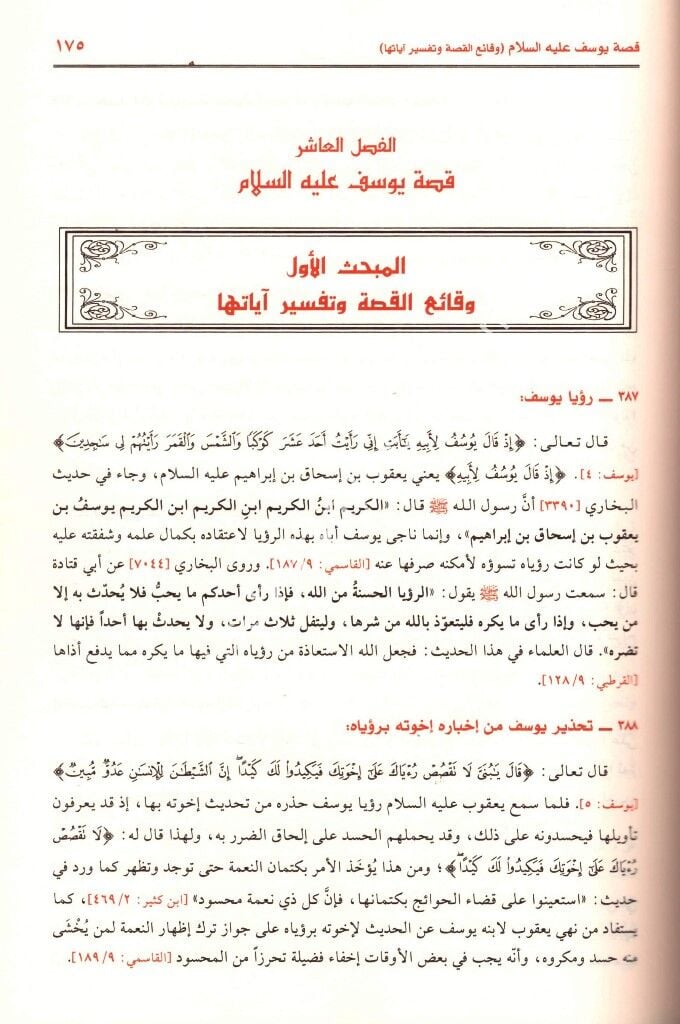 قصة يوسف عليه السلام (وقائع القصة وتفسير آياتها) ١٧٥
الفصل العاشر
قصة يوسف عليه السلام
المبحث الأول
وقائع القصة وتفسير آياتها
٣٨٧ ــ رؤيا يوسف:
قال تعالى: ﴿إِذْ قَالَ يُوسُفُ لِأَبِيهِ يَٰٓأَبَتِ إِنِّي رَأَيْتُ أَحَدَ عَشَرَ كَوْكَبًا وَالشَّمْسَ وَالْقَمَرَ رَأَيْتُهُمْ لِي سَٰجِدِينَ﴾
[يوسف: ٤]. ﴿إِذْ قَالَ يُوسُفُ لِأَبِيهِ﴾ يعني يعقوب بن إسحاق بن إبراهيم عليه السلام، وجاء في حديث
البخاري [٣٣٩٠] أنَّ رسول الله ﷺ قال: «الكريم ابنُ الكريم ابنِ الكريم ابن الكريم يوسفُ بن
يعقوب بن إسحاق بن إبراهيم»، وإنما ناجى يوسف أباه بهذه الرؤيا لاعتقاده بكمال علمه وشفقته عليه
بحيث لو كانت رؤياه تسوؤه لأمكنه صرفها عنه [القاسمي: ٩/ ١٨٧]. وروى البخاري [٧٠٤٤] عن أبي قتادة
قال: سمعت رسول الله ﷺ يقول: «الرؤيا الحسنةُ من الله، فإذا رأى أحدكم ما يحبُّ فلا يُحدّث به إلا
من يحب، وإذا رأى ما يكره فليتعوّذ بالله من شرها، وليتفل ثلاث مرات، ولا يحدثْ بها أحداً فإنها لا
تضره». قال العلماء في هذا الحديث: فجعل الله الاستعاذة من رؤياه التي فيها ما يكره مما يدفع أذاها
[القرطبي: ٩/ ١٢٨].
٣٨٨ ــ تحذير يوسف من إخباره إخوته برؤياه:
قال تعالى: ﴿قَالَ يَٰبُنَيَّ لَا تَقْصُصْ رُءْيَاكَ عَلَىٰٓ إِخْوَتِكَ فَيَكِيدُوا۟ لَكَ كَيْدًا ۖ إِنَّ الشَّيْطَٰنَ لِلْإِنسَٰنِ عَدُوٌّ مُّبِينٌ﴾
[يوسف: ٥]. فلما سمع يعقوب عليه السلام رؤيا يوسف حذره من تحديث إخوته بها، إذ قد يعرفون
تأويلها فيحسدونه على ذلك، وقد يحملهم الحسد على إلحاق الضرر به، ولهذا قال له: ﴿لَا تَقْصُصْ
رُءْيَاكَ عَلَىٰٓ إِخْوَتِكَ فَيَكِيدُوا۟ لَكَ كَيْدًا ۖ﴾؛ ومن هذا يُؤخَذ الأمر بكتمان النعمة حتى توجد وتظهر كما ورد في
حديث: «استعينوا على قضاء الحوائج بكتمانها، فإنَّ كل ذي نعمة محسود» [ابن كثير: ٢/ ٤٦٩]، كما
يستفاد من نهي يعقوب لابنه يوسف عن الحديث لإخوته برؤياه على جواز ترك إظهار النعمة لمن يُخْشَى
منه حسد ومكروه، وأنّه يجب في بعض الأوقات إخفاء فضيلة تحرزاً من المحسود [القاسمي: ٩/ ١٨٩].